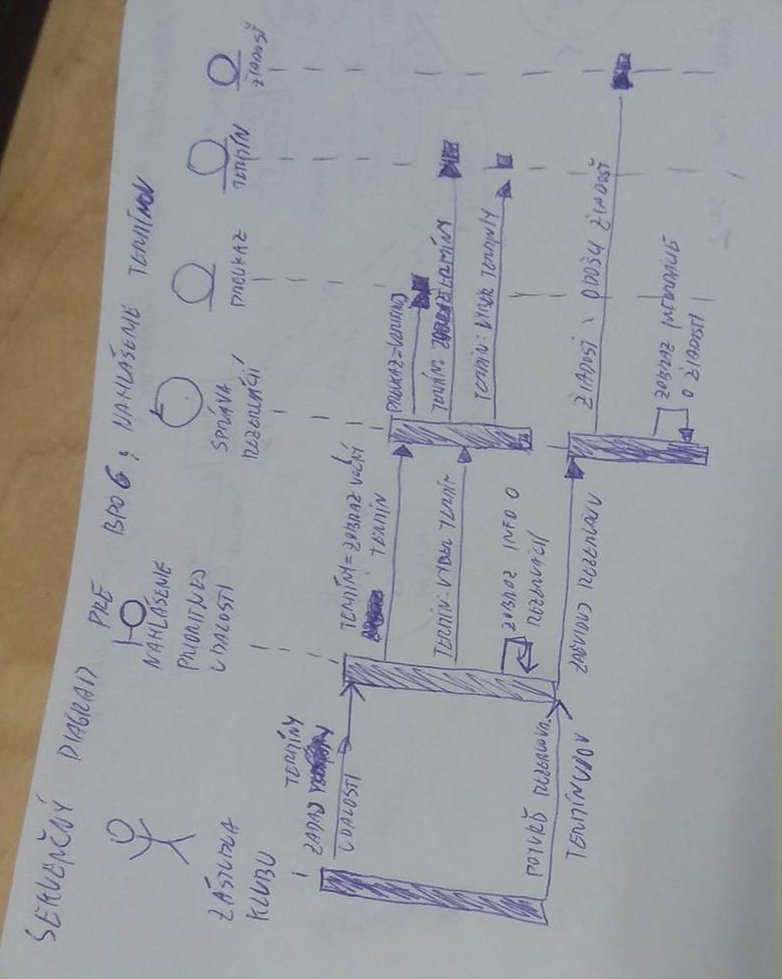 SEKVENČNÝ DIAGRAM PRE BP06: NAHLÁSENIE TERMÍNOV
ZÁSTUPCA
KLUBU
NAHLÁSENIE
PRIORITNEJ
UDALOSTI
SPRÁVA
REZERVÁCIÍ
PREUKAZ
TERMÍN
ŽIADOSŤ
ZADAJ TERMÍNY
UDALOSTI
TERMÍN: ZOBRAZ VOĽNÝ
TERMÍN
PREUKAZ:
TERMÍN: TERMÍNY
TERMÍN: VYBER TERMÍN
TERMÍN: VYBER TERMÍNY
ZOBRAZ INFO O
REZERVÁCII
POTVRĎ REZERVÁCIU
TERMÍNOV
ZAEVIDUJ REZERVÁCIU
ŽIADOSŤ: ODOŠLI ŽIADOSŤ
ZOBRAZ INFORMÁCIE
O ŽIADOSTI